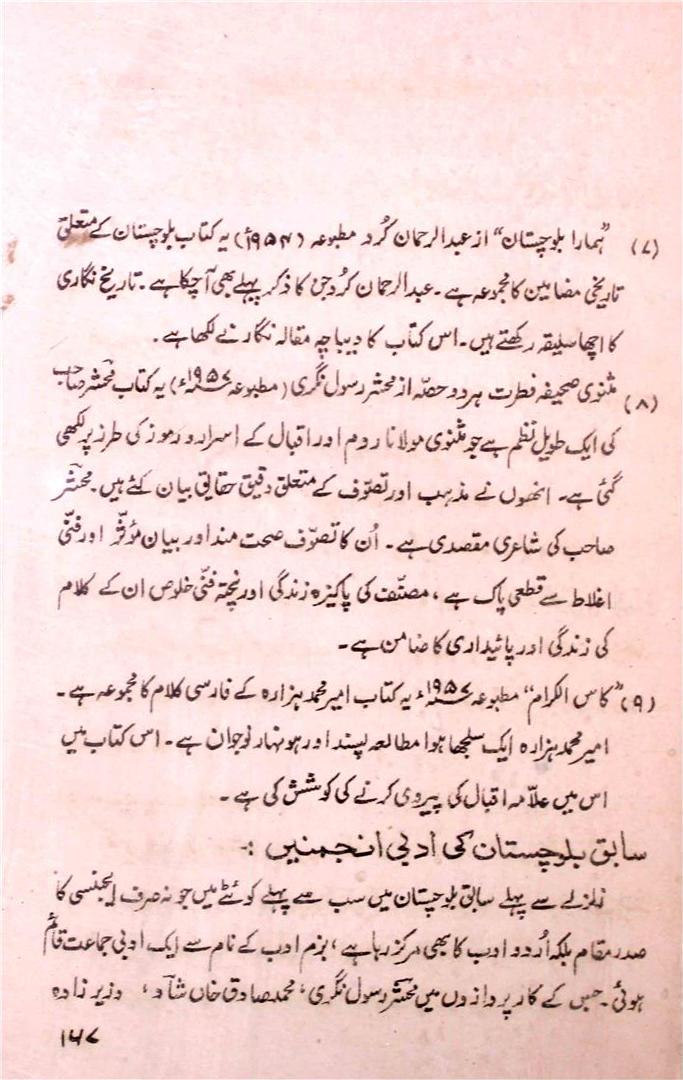 (۷) "ہمارا بلوچستان" از عبدالرحمان کُرد مطبوعہ (۱۹۵۴ء) یہ کتاب بلوچستان کے متعلق
تاریخی مضامین کا مجموعہ ہے۔ عبدالرحمان کُرد جن کا ذکر پہلے بھی آ چکا ہے۔ تاریخ نگاری
کا اچھا سلیقہ رکھتے ہیں۔ اس کتاب کا دیباچہ مقالہ نگار نے لکھا ہے۔
(۸) مثنوی صحیفہ فطرت ہر دو حصّہ از محشر رسول نگری (مطبوعہ ۱۹۵۷ء) یہ کتاب محشر صاحب
کی ایک طویل نظم ہے جو مثنوی مولانا روم اور اقبال کے اسرار و رموز کی طرز پر لکھی
گئی ہے۔ انھوں نے مذہب اور تصوّف کے متعلق دقیق حقایق بیان کئے ہیں۔ محشر
صاحب کی شاعری مقصدی ہے۔ اُن کا تصوّف صحت مند اور بیان مؤثّر اور فنّی
اغلاط سے قطعی پاک ہے، مصنّف کی پاکیزہ زندگی اور پختہ فنّی خلوص ان کے کلام
کی زندگی اور پائیداری کا ضامن ہے۔
(۹) "کاس الکرام" مطبوعہ ۱۹۵۷ء یہ کتاب امیر محمد ہزارہ کے فارسی کلام کا مجموعہ ہے۔
امیر محمد ہزارہ ایک سلجھا ہوا مطالعہ پسند اور ہونہار نوجوان ہے۔ اس کتاب میں
اس میں علّامہ اقبال کی پیروی کرنے کی کوشش کی ہے۔
سابق بلوچستان کی ادبی انجمنیں :-
زلزلے سے پہلے سابق بلوچستان میں سب سے پہلے کوئٹے میں جو نہ صرف ایجنسی کا
صدر مقام بلکہ اُردو ادب کا بھی مرکز رہا ہے، بزم ادب کے نام سے ایک ادبی جماعت قائم
ہوئی۔ جس کے کار پردازوں میں محشر رسول نگری، محمد صادق خاں شاد، وزیر زادہ
۱۶۷